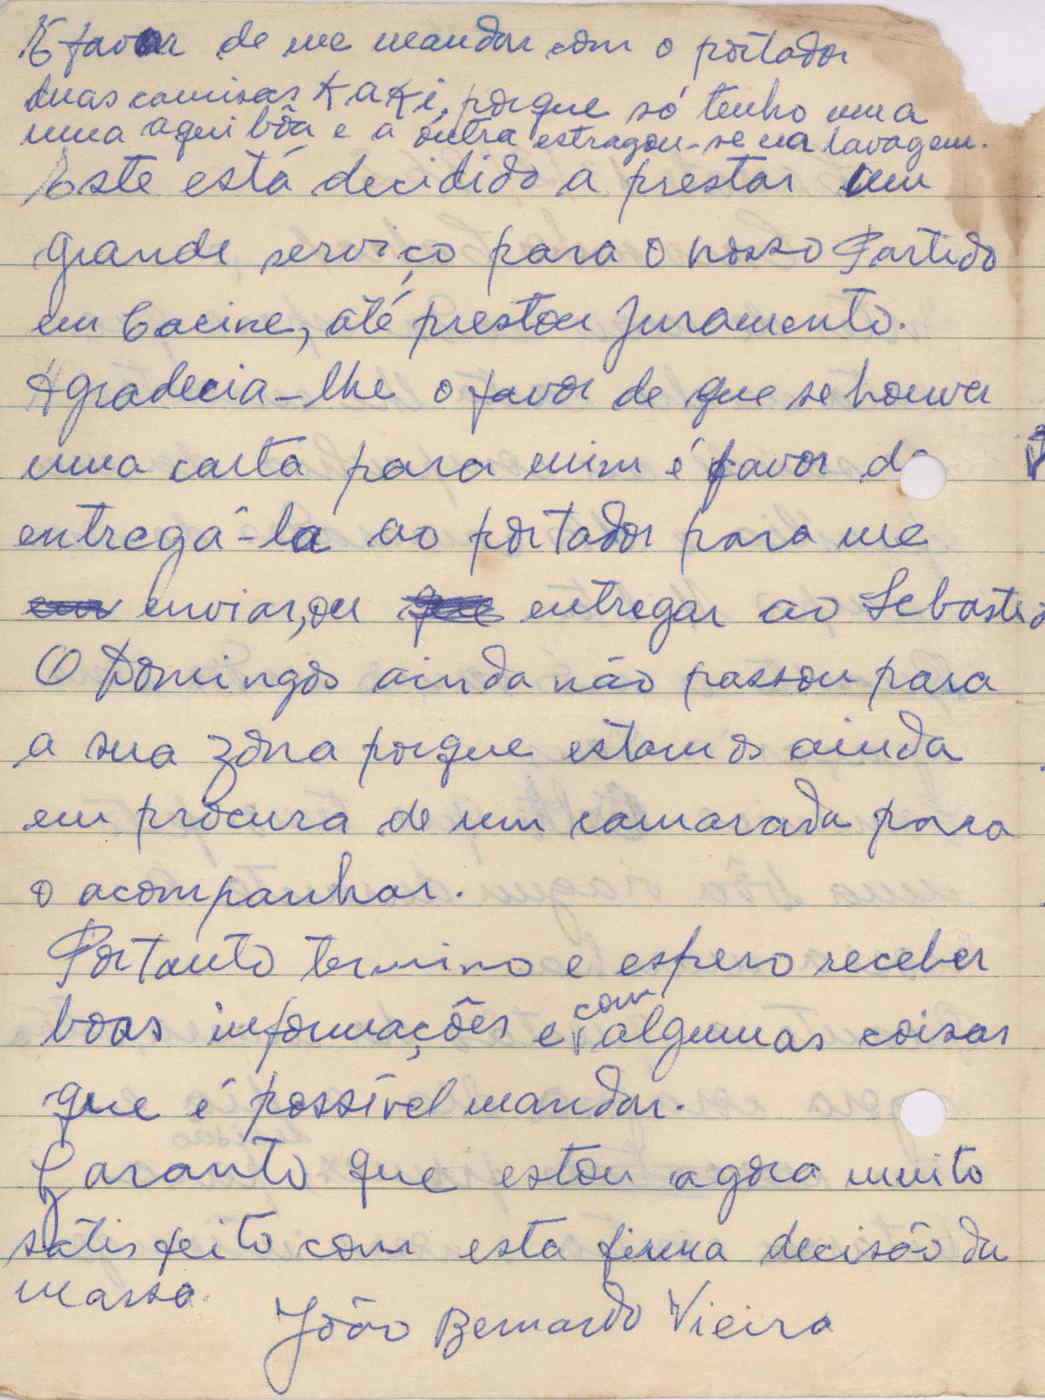 É favor de me mandar com o portador
duas camisas Kaki, porque só tenho uma
uma aqui bôa e a outra estragou-se na lavagem.
Este está decidido a prestar um
grande serviço para o nosso Partido
em Cacine, até prestou Juramento.
Agradecia-lhe o favor de que se houver
uma carta para mim é favor de
entregá-la ao portador para me
enviar, ou entregar ao Sebastiã
O Domingos ainda não passou para
a sua zona porque estamos ainda
em procura de um camarada para
o acompanhar.
Portanto termino e espero receber
boas informações e com algumas coisas
que é possível mandar.
Garanto que estou agora muito
satisfeito com esta firma decisão da
massa.
João Bernardo Vieira